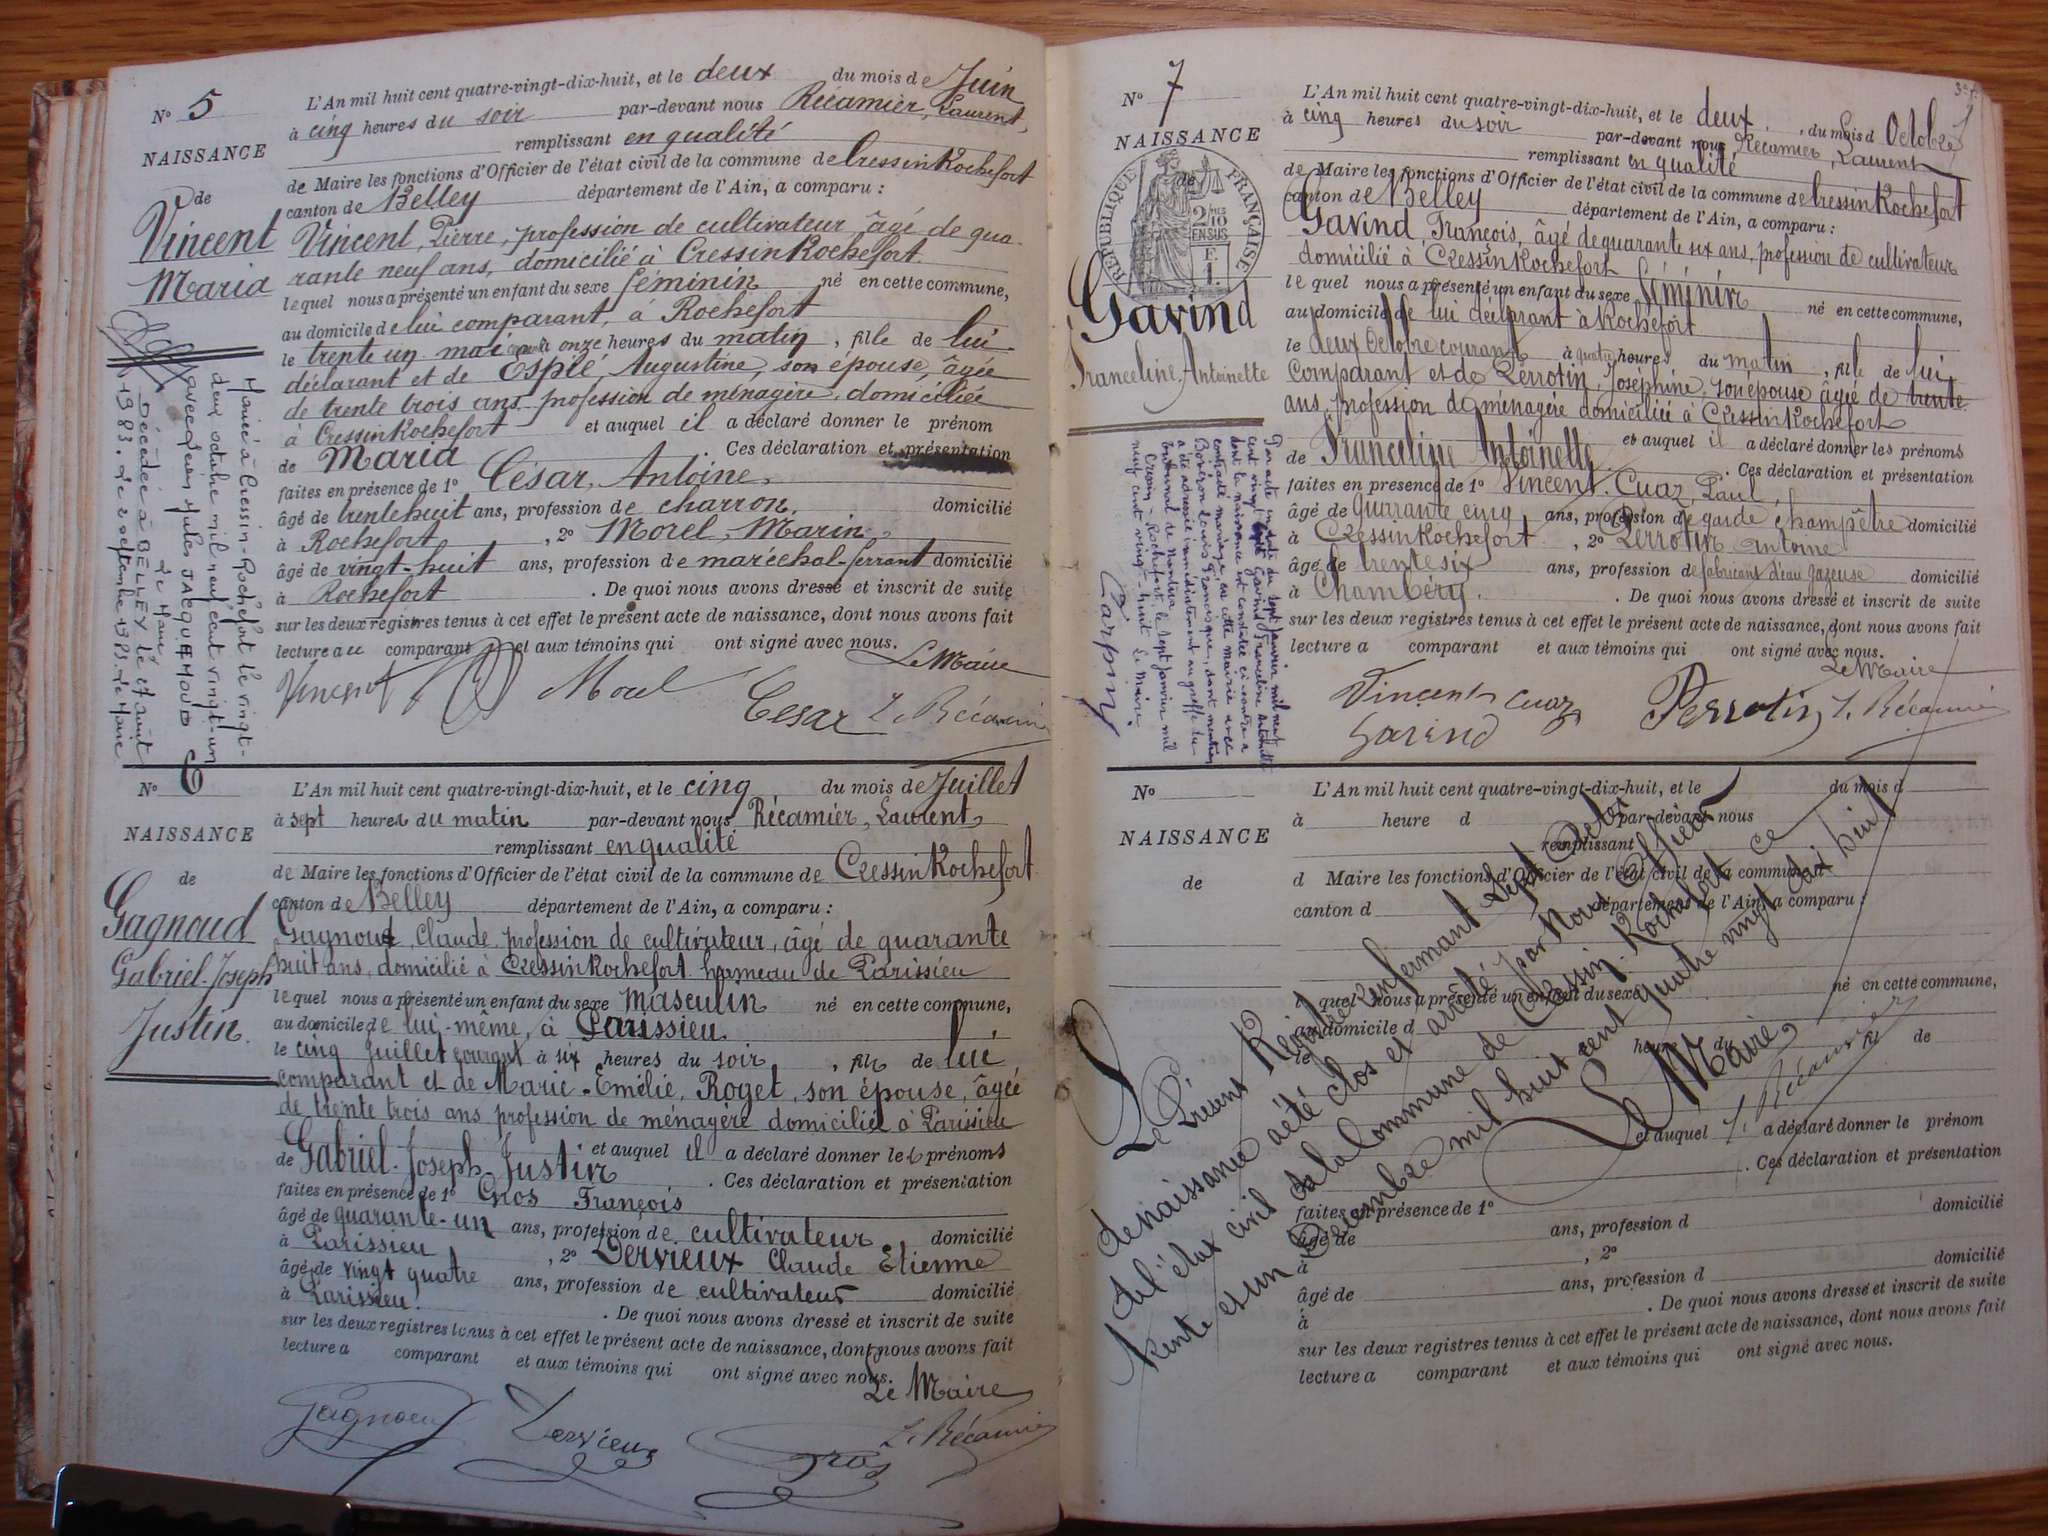 N° 5
NAISSANCE
de
Vincent
Maria
L'An mil huit cent quatre-vingt-dix-huit, et le deux du mois de Juin
à cinq heures du soir par-devant nous Récamier, Laurent,
remplissant en qualité
de Maire les fonctions d'Officier de l'état civil de la commune de Cressin Rochefort
canton de Belley département de l'Ain, a comparu :
Vincent, Pierre, profession de cultivateur âgé de qua-
rante neuf ans, domicilié à Cressin Rochefort
lequel nous a présenté un enfant du sexe féminin né en cette commune,
au domicile de lui comparant, à Rochefort
le trente un mai à onze heures du matin, fille de lui
déclarant et de Esplé Augustine, son épouse, âgée
de trente trois ans profession de ménagère, domiciliée
à Cressin Rochefort et auquel il a déclaré donner le prénom
de Maria Ces déclaration et présentation
faites en présence de 1° César, Antoine,
âgé de trente huit ans, profession de charron, domicilié
à Rochefort, 2° Morel, Marin,
âgé de vingt-huit ans, profession de maréchal-ferrant domicilié
à Rochefort. De quoi nous avons dressé et inscrit de suite
sur les deux registres tenus à cet effet le présent acte de naissance, dont nous avons fait
lecture au comparant et aux témoins qui ont signé avec nous.
Le Maire
Vincent Morel César L. Récamier
Mariée à Cressin-Rochefort le vingt-
deux octobre mil neuf cent vingt-un
avec Jules JACQUAMOUD
Le Maire
Décédée à BELLEY le 27 août
1983. Le 2 septembre 1983. Le Maire
N° 6
NAISSANCE
de
Gagnoud
Gabriel-Joseph
Justin.
L'An mil huit cent quatre-vingt-dix-huit, et le cinq du mois de Juillet
à sept heures du matin par-devant nous Récamier, Laurent,
remplissant en qualité
de Maire les fonctions d'Officier de l'état civil de la commune de Cressin Rochefort
canton de Belley département de l'Ain, a comparu :
Gagnoud, Claude, profession de cultivateur, âgé de quarante
huit ans, domicilié à Cressin Rochefort hameau de Parissieu
lequel nous a présenté un enfant du sexe Masculin né en cette commune,
au domicile de lui-même, à Parissieu
le cinq Juillet courant à six heures du soir, fils de lui
comparant et de Marie-Emélie, Roget, son épouse, âgée
de trente trois ans profession de ménagère domiciliée à Parissieu
et auquel il a déclaré donner les prénoms
de Gabriel-Joseph-Justin. Ces déclaration et présentation
faites en présence de 1° Gros François
âgé de quarante-un ans, profession de cultivateur domicilié
à Parissieu, 2° Dervieux Claude Etienne
âgé de vingt quatre ans, profession de cultivateur domicilié
à Parissieu. De quoi nous avons dressé et inscrit de suite
sur les deux registres tenus à cet effet le présent acte de naissance, dont nous avons fait
lecture a comparant et aux témoins qui ont signé avec nous.
Le Maire
Gagnoud Dervieux Gros L. Récamier
N° 7
NAISSANCE
de
RÉPUBLIQUE FRANÇAISE
2/10 EN SUS
Gavind
Franceline Antoinette
L'An mil huit cent quatre-vingt-dix-huit, et le deux, du mois d Octobre
à cinq heures du soir par-devant nous Récamier, Laurent
remplissant en qualité
de Maire les fonctions d'Officier de l'état civil de la commune de Cressin Rochefort
canton de Belley département de l'Ain, a comparu :
Gavind, François, âgé de quarante six ans, profession de cultivateur
domicilié à Cressin Rochefort
lequel nous a présenté un enfant du sexe féminin né en cette commune,
au domicile de lui déclarant à Rochefort
le deux Octobre courant à quatre heures du matin, fille de lui
comparant et de Perrotin, Joséphine, son épouse âgée de trente
ans, profession de ménagère domiciliée à Cressin Rochefort
et auquel il a déclaré donner les prénoms
de Franceline Antoinette. Ces déclaration et présentation
faites en présence de 1° Vincent. Cuaz, Paul,
âgé de quarante cinq ans, profession de garde champêtre domicilié
à Cressin Rochefort, 2° Perrotin Antoine
âgé de trente six ans, profession de fabricant d'eau gazeuse domicilié
à Chambéry. De quoi nous avons dressé et inscrit de suite
sur les deux registres tenus à cet effet le présent acte de naissance, dont nous avons fait
lecture a comparant et aux témoins qui ont signé avec nous.
Le Maire
Vincent Cuaz Perrotin L. Récamier
Gavind
Par acte en date du sept janvier mil neuf
cent vingt huit Gavind Franceline Antoinette
dont la naissance est constatée ci-contre a
contracté mariage en cette mairie avec
Louis François, dont mention
a été adressée immédiatement au greffe du
tribunal de
Cressin-Rochefort, le sept janvier mil
neuf cent vingt-huit. Le Maire,
Carpin
N°
NAISSANCE
de
L'An mil huit cent quatre-vingt-dix-huit, et le du mois d
à heure d par-devant nous
remplissant
d Maire les fonctions d'Officier de l'état civil de la commune d
canton d département de l'Ain, a comparu :
lequel nous a présenté un enfant du sexe né en cette commune,
au domicile d
le heure du, fil de
et auquel a déclaré donner le prénom
. Ces déclaration et présentation
faites en présence de 1°
âgé de ans, profession d domicilié
à, 2°
âgé de ans, profession d domicilié
à. De quoi nous avons dressé et inscrit de suite
sur les deux registres tenus à cet effet le présent acte de naissance, dont nous avons fait
lecture a comparant et aux témoins qui ont signé avec nous.
Le Présent Registre renfermant Sept Actes
de naissance a été clos et arrêté par Nous Officier
de l'état civil de la Commune de Cressin-Rochefort ce
trente et un Décembre mil huit cent quatre vingt dix huit
Le Maire,
L. Récamier